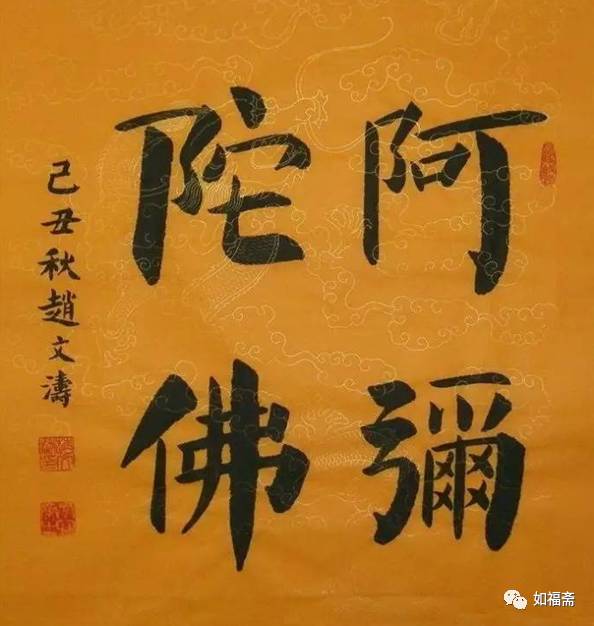 阿彌
陀佛
己丑秋趙文濤
如福斋